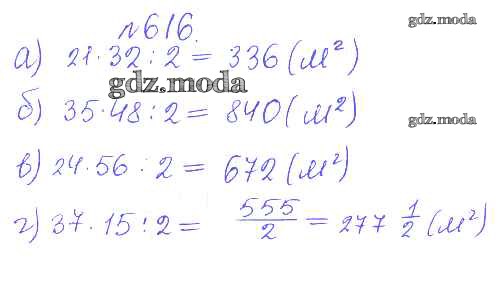 №616.
gdz.moda
а) 21·32:2 = 336 (м²)
gdz.moda
б) 35·48:2 = 840 (м²)
gdz.moda
в) 24·56:2 = 672 (м²)
г) 37·15:2 = 555/2 = 277 1/2 (м²)